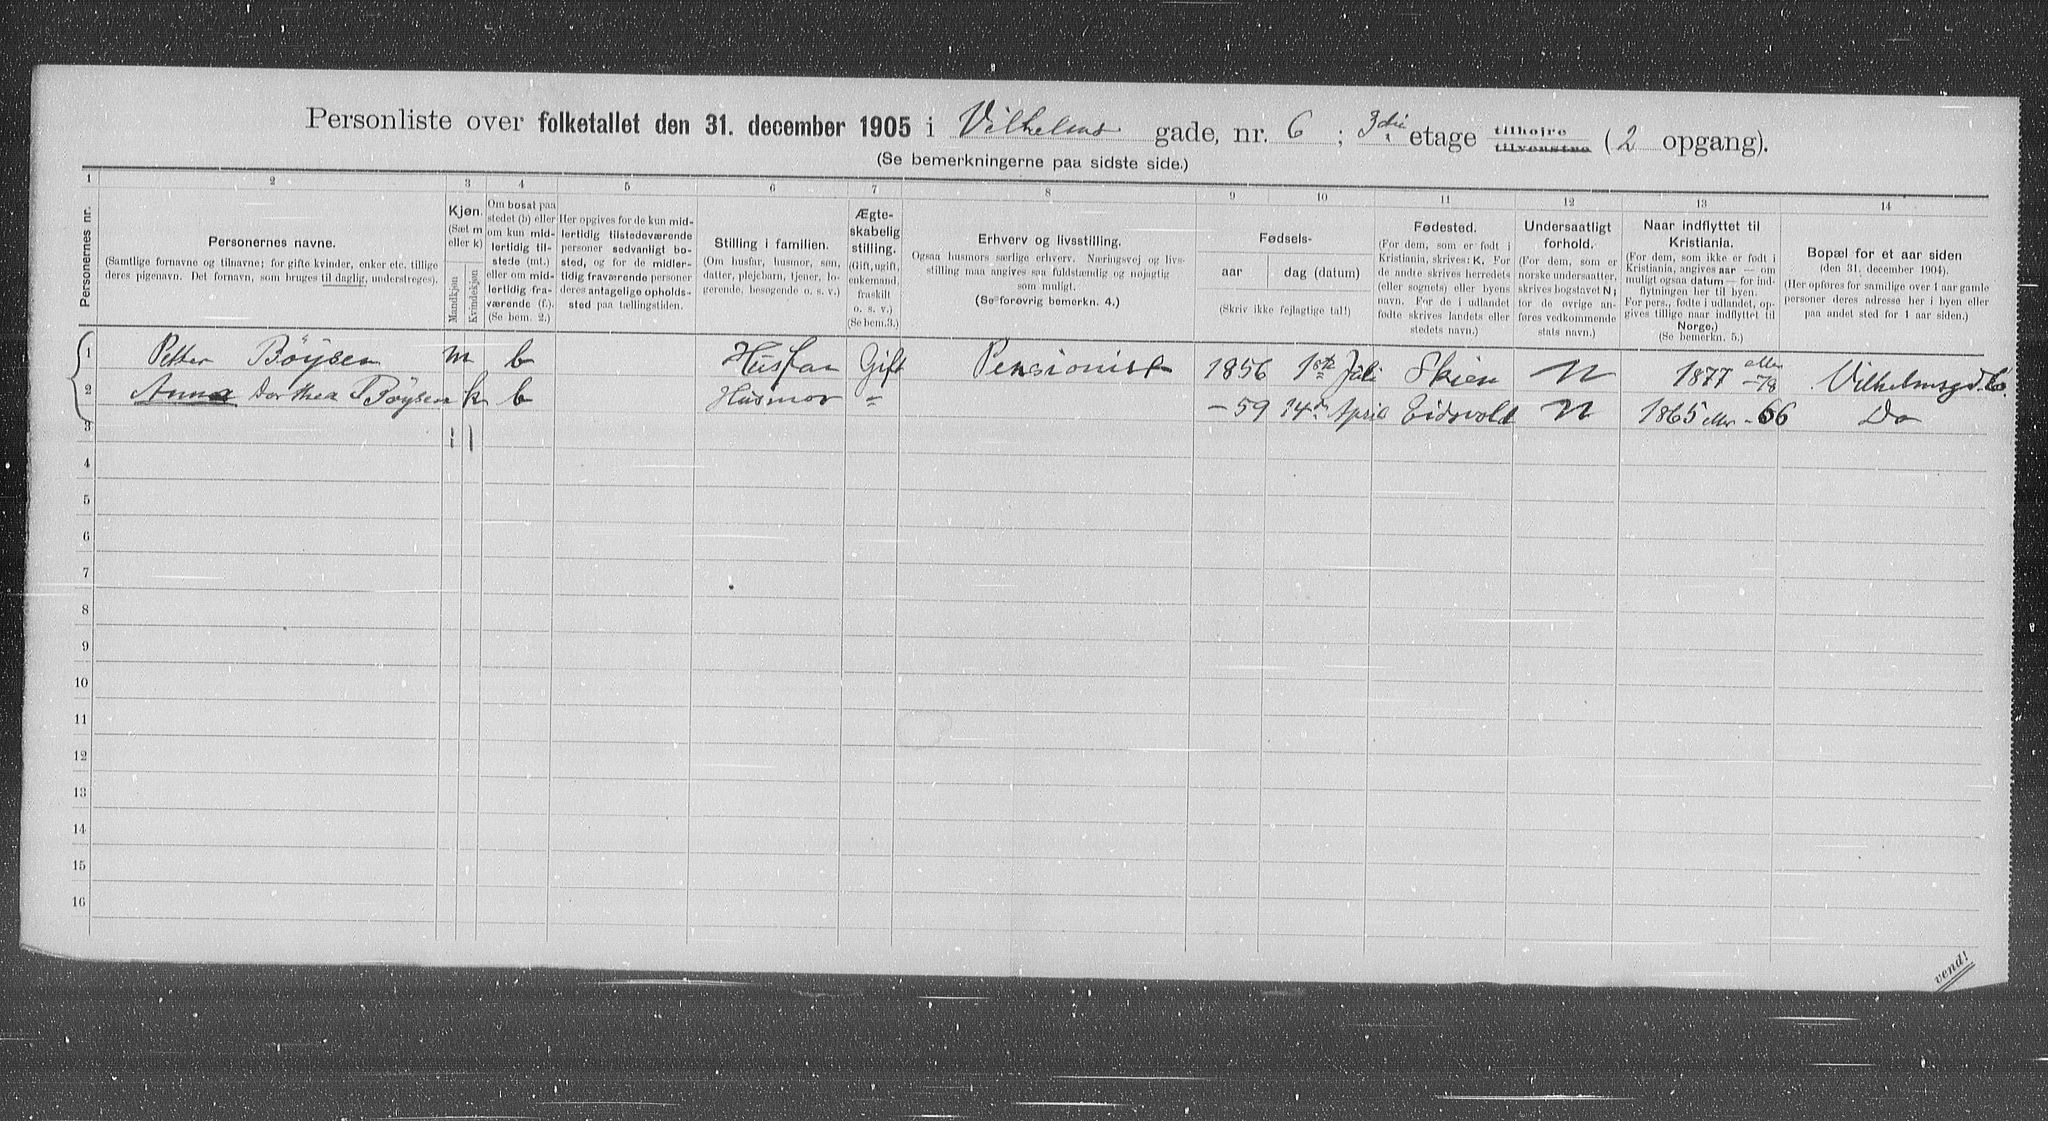 Personliste over folketallet den 31. december 1905 i Vilhelms gade, nr. 6 ; 3die etage tilhøjre tilvenstre (2 opgang).
(Se bemerkningerne paa sidste side.)
1 2 3 4 5 6 7 8 9 10 11 12 13 14
Personernes nr.
Personernes navne.
(Samtlige fornavne og tilnavne; for gifte kvinder, enker etc. tillige
deres pigenavn. Det fornavn, som bruges til daglig, understreges).
Kjøn.
(Sæt m
eller k)
Mandkjøn
Kvindekjøn
Om bosat paa
stedet (b) eller
om kun mid-
lertidig til-
stede (mt.)
eller om mid-
lertidig fra-
værende (f.).
(Se bem. 2.)
Her opgives for de kun mid-
lertidig tilstedeværende
personer sedvanligt bo-
sted, og for de midler-
tidig fraværende personer
deres antagelige opholds-
sted paa tællingstiden.
Stilling i familien.
(Om husfar, husmor, søn,
datter, plejebarn, tjener, lo-
gerende, besøgende o. s. v.)
Ægte-
skabelig
stilling.
(Gift, ugift,
enkemand,
fraskilt
o. s. v.)
(Se bem.3.)
Erhverv og livsstilling.
Ogsaa husmors særlige erhverv. Næringsvej og livs-
stilling maa angives saa fuldstændig og nøjagtig
som muligt.
(Se forøvrig bemerkn. 4.)
Fødsels-
aar
dag (datum)
(Skriv ikke fejlagtige tal!)
Fødested.
(For dem, som er født i
Kristiania, skrives: K. For
de andre skrives herredets
(eller sognets) eller byens
navn. For de i udlandet
fødte skrives landets eller
stedets navn.)
Undersaatligt
forhold.
(For dem, som er
norske undersaatter,
skrives bogstavet N;
for de øvrige an-
føres vedkommende
stats navn.)
Naar indflyttet til
Kristiania.
(For dem, som ikke er født i
Kristiania, angives aar — om
muligt ogsaa datum — for ind-
flytningen her til byen.
For pers., fødte i udlandet, op-
gives tillige naar indflyttet til
Norge.)
(Se bemerkn. 5.)
Bopæl for et aar siden
(den 31. december 1904).
(Her opføres for samtlige over 1 aar gamle
personer deres adresse her i byen eller
paa andet sted for 1 aar siden.)
1 Petter Böysen m b Husfar Gift Pensionist 1856 1ste Juli Skien N 1877 eller -78 Vilhelmsgd. 6.
2 Anna Dorthea Böysen k b Husmor " - 59 14de April Eidsvold N 1865 eller - 66 Do
3
4
5
6
7
8
9
10
11
12
13
14
15
16
vend!